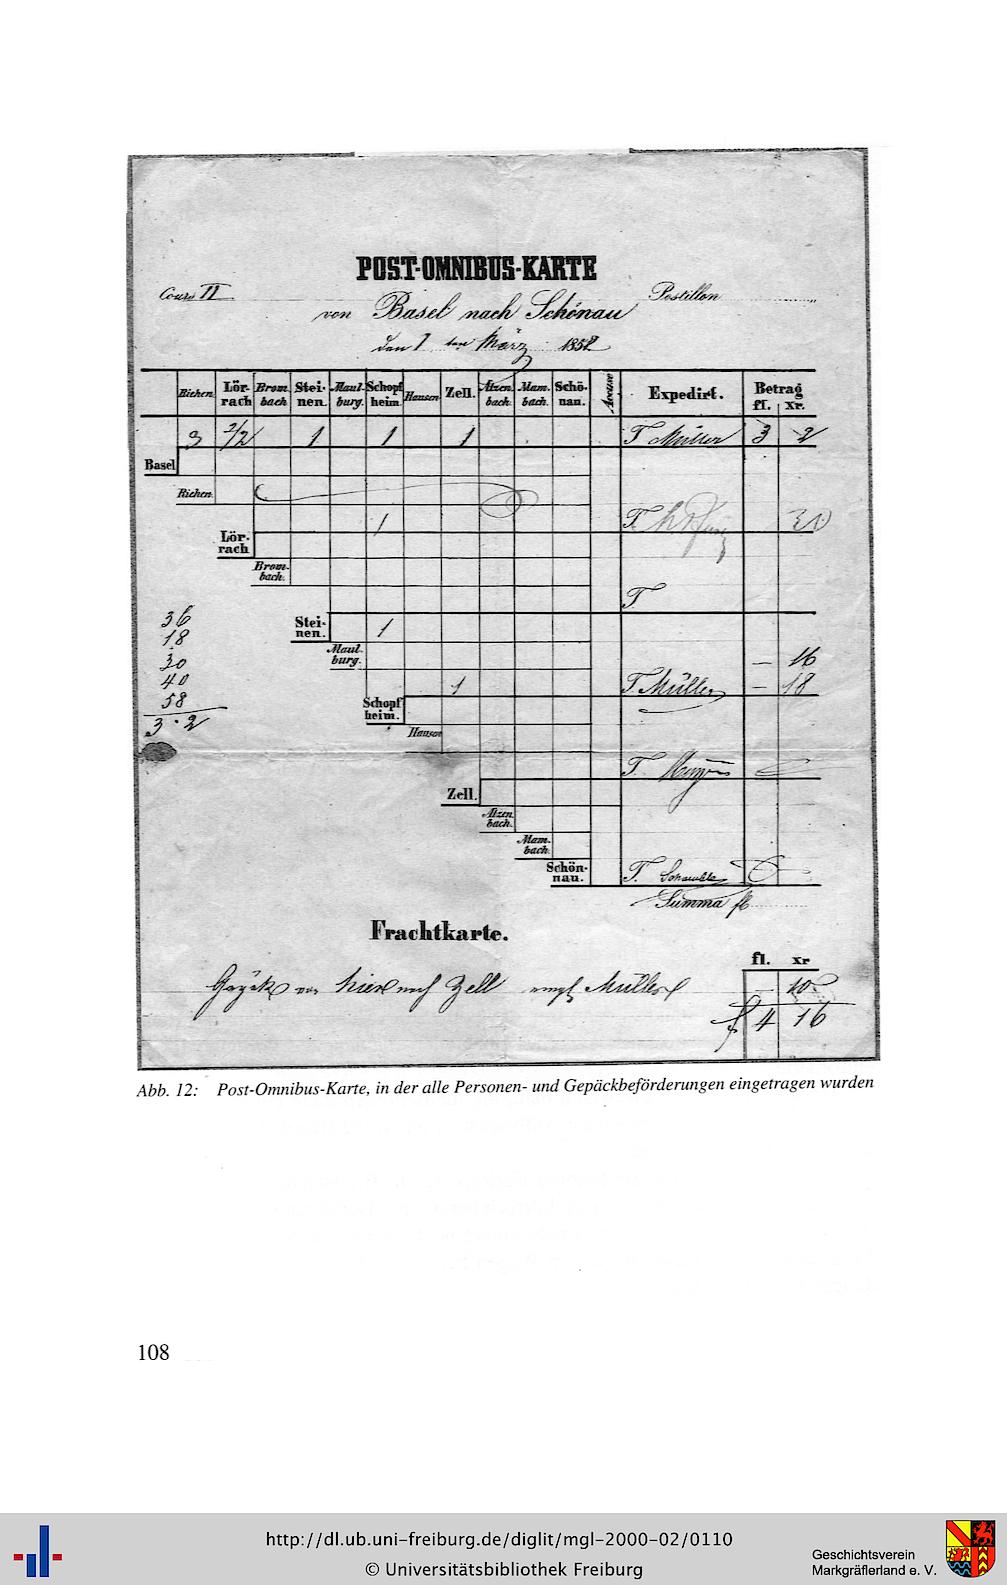 POST-OMNIBUS-KARTE
Cours II Postillon
von Basel nach Schönau
den 1 ten März 1852
Riehen. Lör- rach Brom- bach Stei- nen. Maul- burg. Schopf heim. Hausen Zell. Atzen- bach. Mam- bach. Schö- nau. Accuse Expedirt. Betrag fl. xr.
3 2/2 1 1 1 T Müller 3 2
Basel
Riehen.
1 T 30
Lör- rach
Brom- bach.
T
36
Stei- nen. 1
18
Maul- burg. – 16
30
40 1 T Müller – 18
58 Schopf heim.
3 · 2
Hausen
T.
Zell.
Atzen bach.
Mam- bach.
Schön- nau. T.
Summa fl
Frachtkarte.
fl. xr
von hier nach Zell Müller – 40
f 4 16
Abb. 12: Post-Omnibus-Karte, in der alle Personen- und Gepäckbeförderungen eingetragen wurden
108
http://dl.ub.uni-freiburg.de/diglit/mgl-2000-02/0110
© Universitätsbibliothek Freiburg
Geschichtsverein
Markgräflerland e. V.